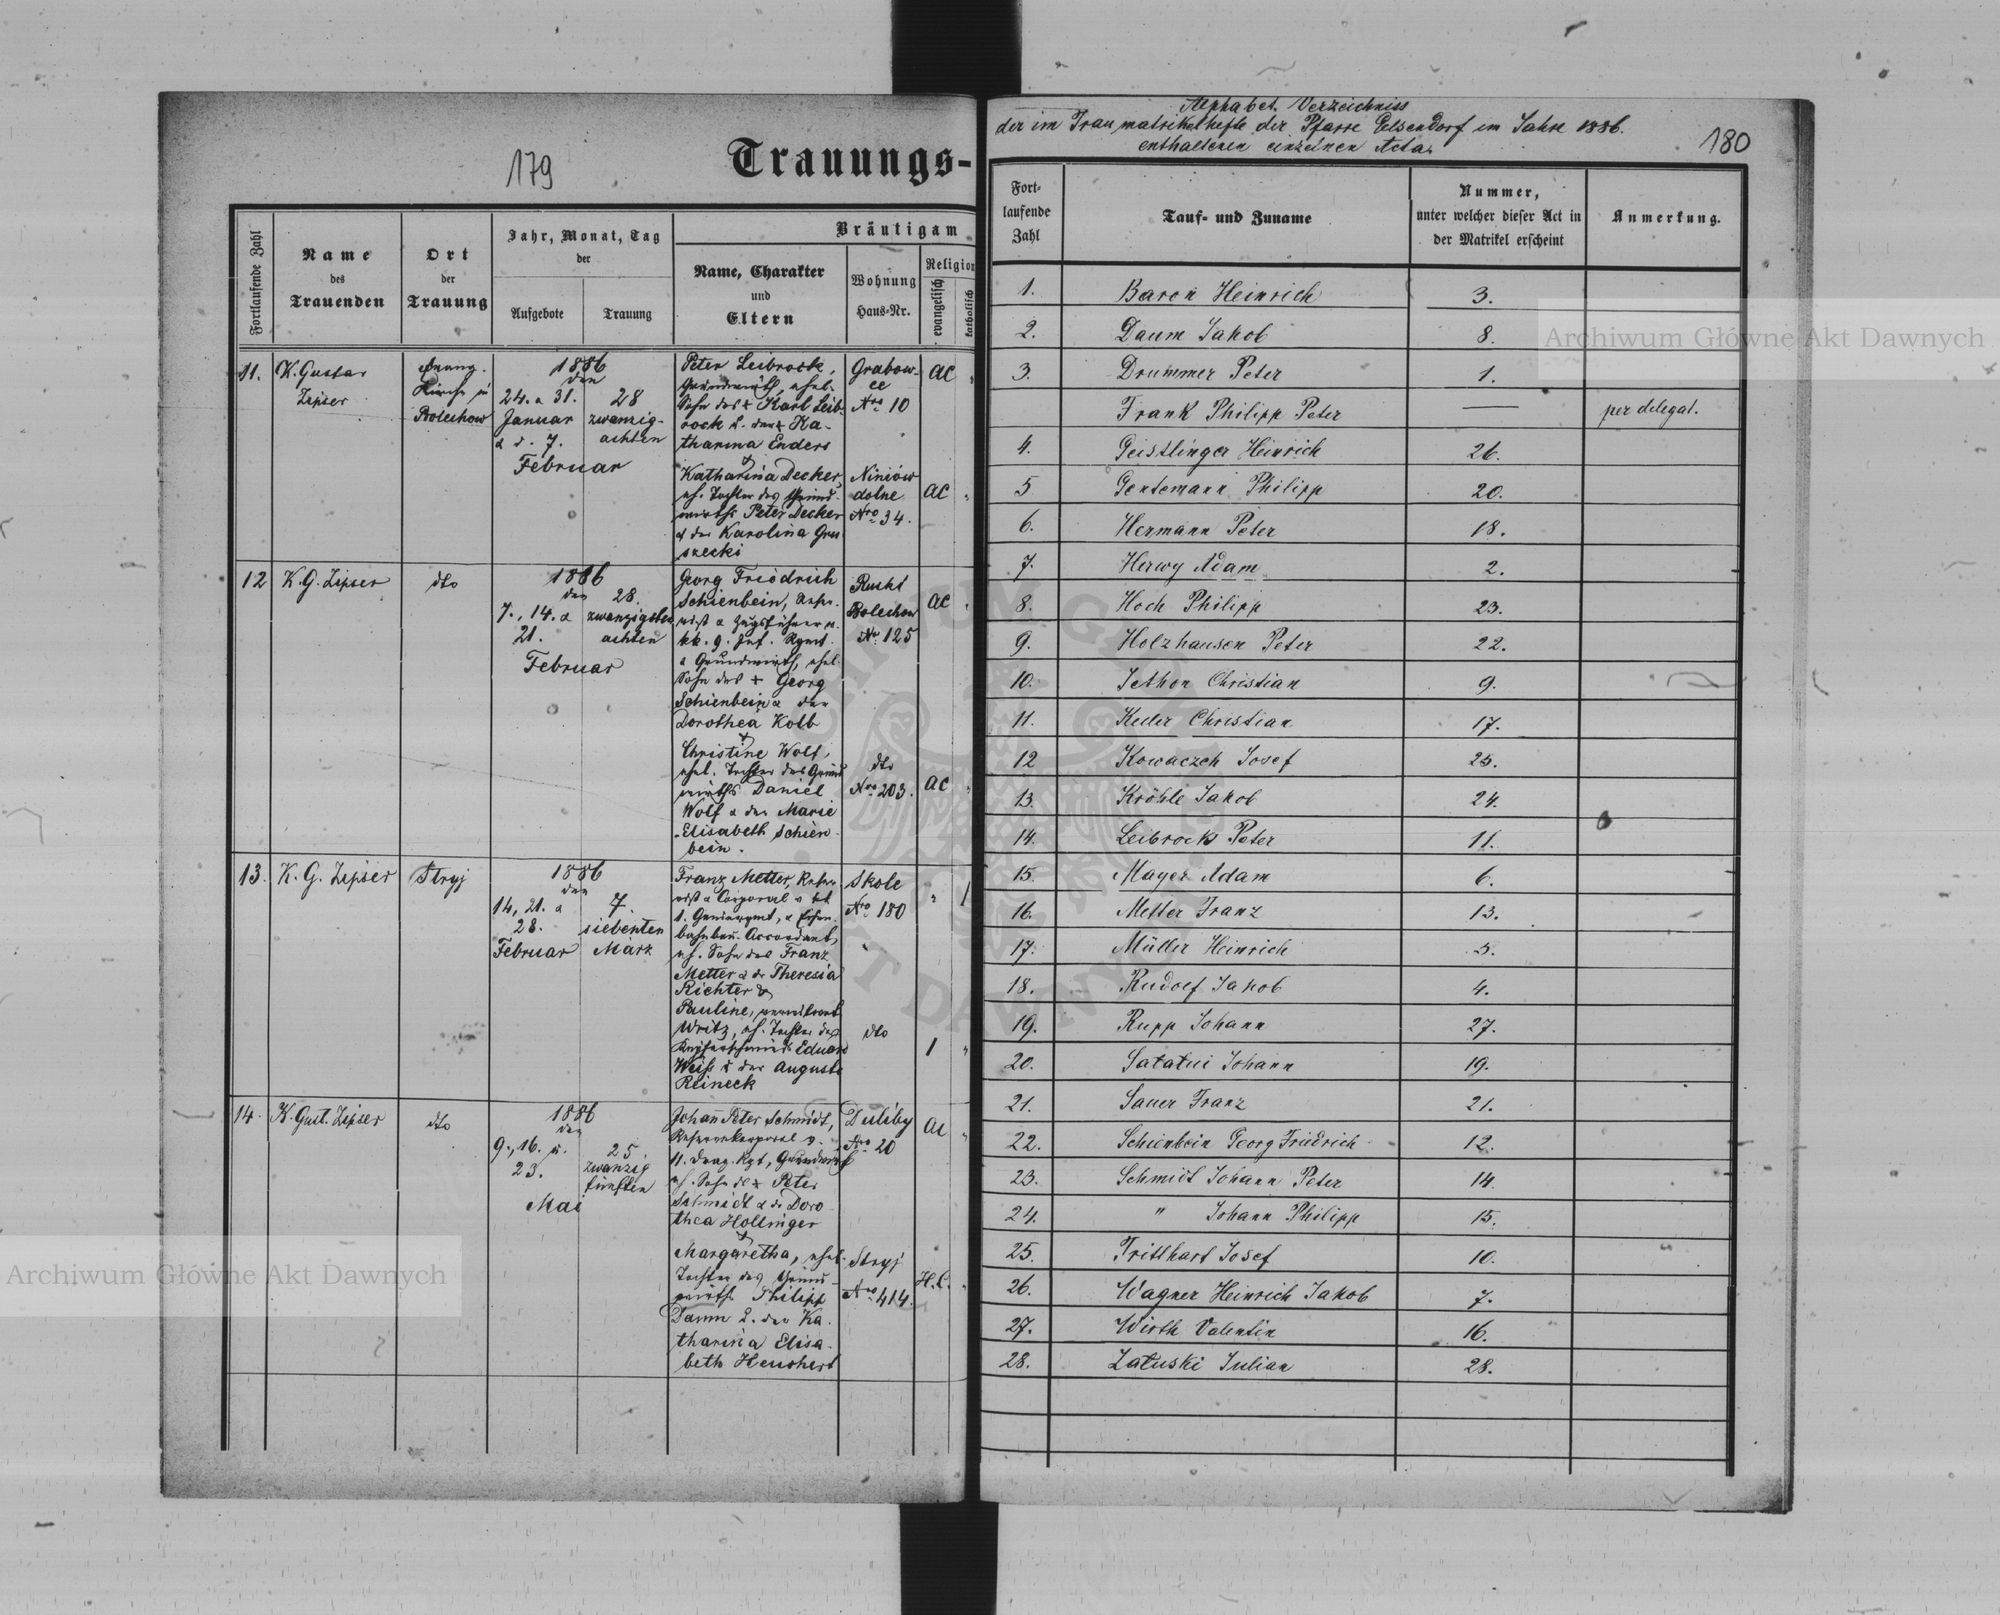 179
Trauungs-
Fortlaufende Zahl
Name
des
Trauenden
Ort
der
Trauung
Jahr, Monat, Tag
der
Aufgebote
Trauung
Bräutigam
Name, Charakter
und
Eltern
Wohnung
Haus-Nr.
Religion
evangelisch
katholisch
11.
K. Gustav
Zipser
evang.
Kirche in
Bolechow
1886
den
24. & 31.
Januar
& d. 7.
Februar
28
zwanzig-
achten
Peter Leibrock,
Grundwirth, ehel.
Sohn des + Karl Leib-
rock u. der + Ka-
tharina Enders
&
Katharina Decker,
eh. Tochter des Grund-
wirths Peter Decker
& der Karolina Grus
szecki
Grabow-
ce
Nro 10
Niniów
dolne
Nro 34.
AC
AC
12
K. G. Zipser
dto
1886
den
7., 14. &
21.
Februar
28.
zwanzigsten
achten
Georg Friedrich
Schienbein, Reser-
vist & Zugsführer v.
kk. 9. Inf. Rgmt.
& Grundwirth, ehel.
Sohn des + Georg
Schienbein & der
Dorothea Kolb
&
Christine Wolf,
ehel. Tochter des Grund
wirths Daniel
Wolf & der Marie
Elisabeth Schien-
bein.
Ruskt
Bolechow
Nro 125
dto
Nro 203.
AC
AC
13.
K. G. Zipser
Stryj
1886
den
14., 21. &
28.
Februar
7.
siebenten
März
Franz Metter, Reser
vist & Corporal v. kk
1. Genieregmt, & Eisen-
bahnbau-Accordant,
eh. Sohn des Franz
Metter & der Theresia
Richter &
Pauline,
Writz, eh. Tochter des
Kupferschmieds Eduard
Weiß & der Auguste
Reineck
Skole
Nro 180
dto
1
14.
K. Gust. Zipser
dto
1886
den
9., 16. u.
23.
Mai
25.
zwanzig
fünften
Johann Peter Schmidt,
Reservekorporal v.
11. Drag. Rgt, Grundwirth
eh. Sohn des + Peter
Schmidt & der Doro
thea Hollinger
&
Margaretha, ehel.
Tochter des Grund-
wirths Philipp
Damm u. der Ka-
tharina Elisa-
beth Heuchert
Duliby
Nro 20
Stryj
Nro 414.
AC
H.C.
Alphabet. Verzeichniss
der im Traumatrikelhefte der Pfarre Gelsendorf im Jahre 1886.
enthaltenen einzelnen Acta.
180
Fort-
laufende
Zahl
Tauf- und Zuname
Nummer,
unter welcher dieser Act in
der Matrikel erscheint
Anmerkung.
1. Baron Heinrich 3.
2. Daum Jakob 8.
3. Drummer Peter 1.
Frank Philipp Peter — per delegat.
4. Geistlinger Heinrich 26.
5 Gentemann Philipp 20.
6. Hermann Peter 18.
7. Herwy Adam 2.
8. Hoch Philipp 23.
9. Holzhausen Peter 22.
10. Jethon Christian 9.
11. Keder Christian 17.
12 Kowaczch Josef 25.
13. Kröhle Jakob 24.
14. Leibrock Peter 11.
15. Mayer Adam 6.
16. Metter Franz 13.
17. Müller Heinrich 5.
18. Rudolf Jakob 4.
19. Rupp Johann 27.
20. Satatui Johann 19.
21. Sauer Franz 21.
22. Schienbein Georg Friedrich 12.
23. Schmidt Johann Peter 14.
24. " Johann Philipp 15.
25. Tritthart Josef 10.
26. Wagner Heinrich Jakob 7.
27. Wirth Valentin 16.
28. Załuski Julian 28.
Archiwum Główne Akt Dawnych
Archiwum Główne Akt Dawnych